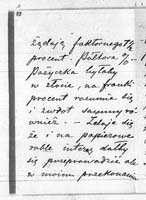 żądają faktornego 1/2
procent. Pułtora %
Pożyczka byłaby
w złocie, na franki
procent rozumie się
i zwrot sayumy ró
wnież — Zdaje się
że i na papierowe
ruble interes dałby
się przeprowadzić ale
w moim przekonaniu